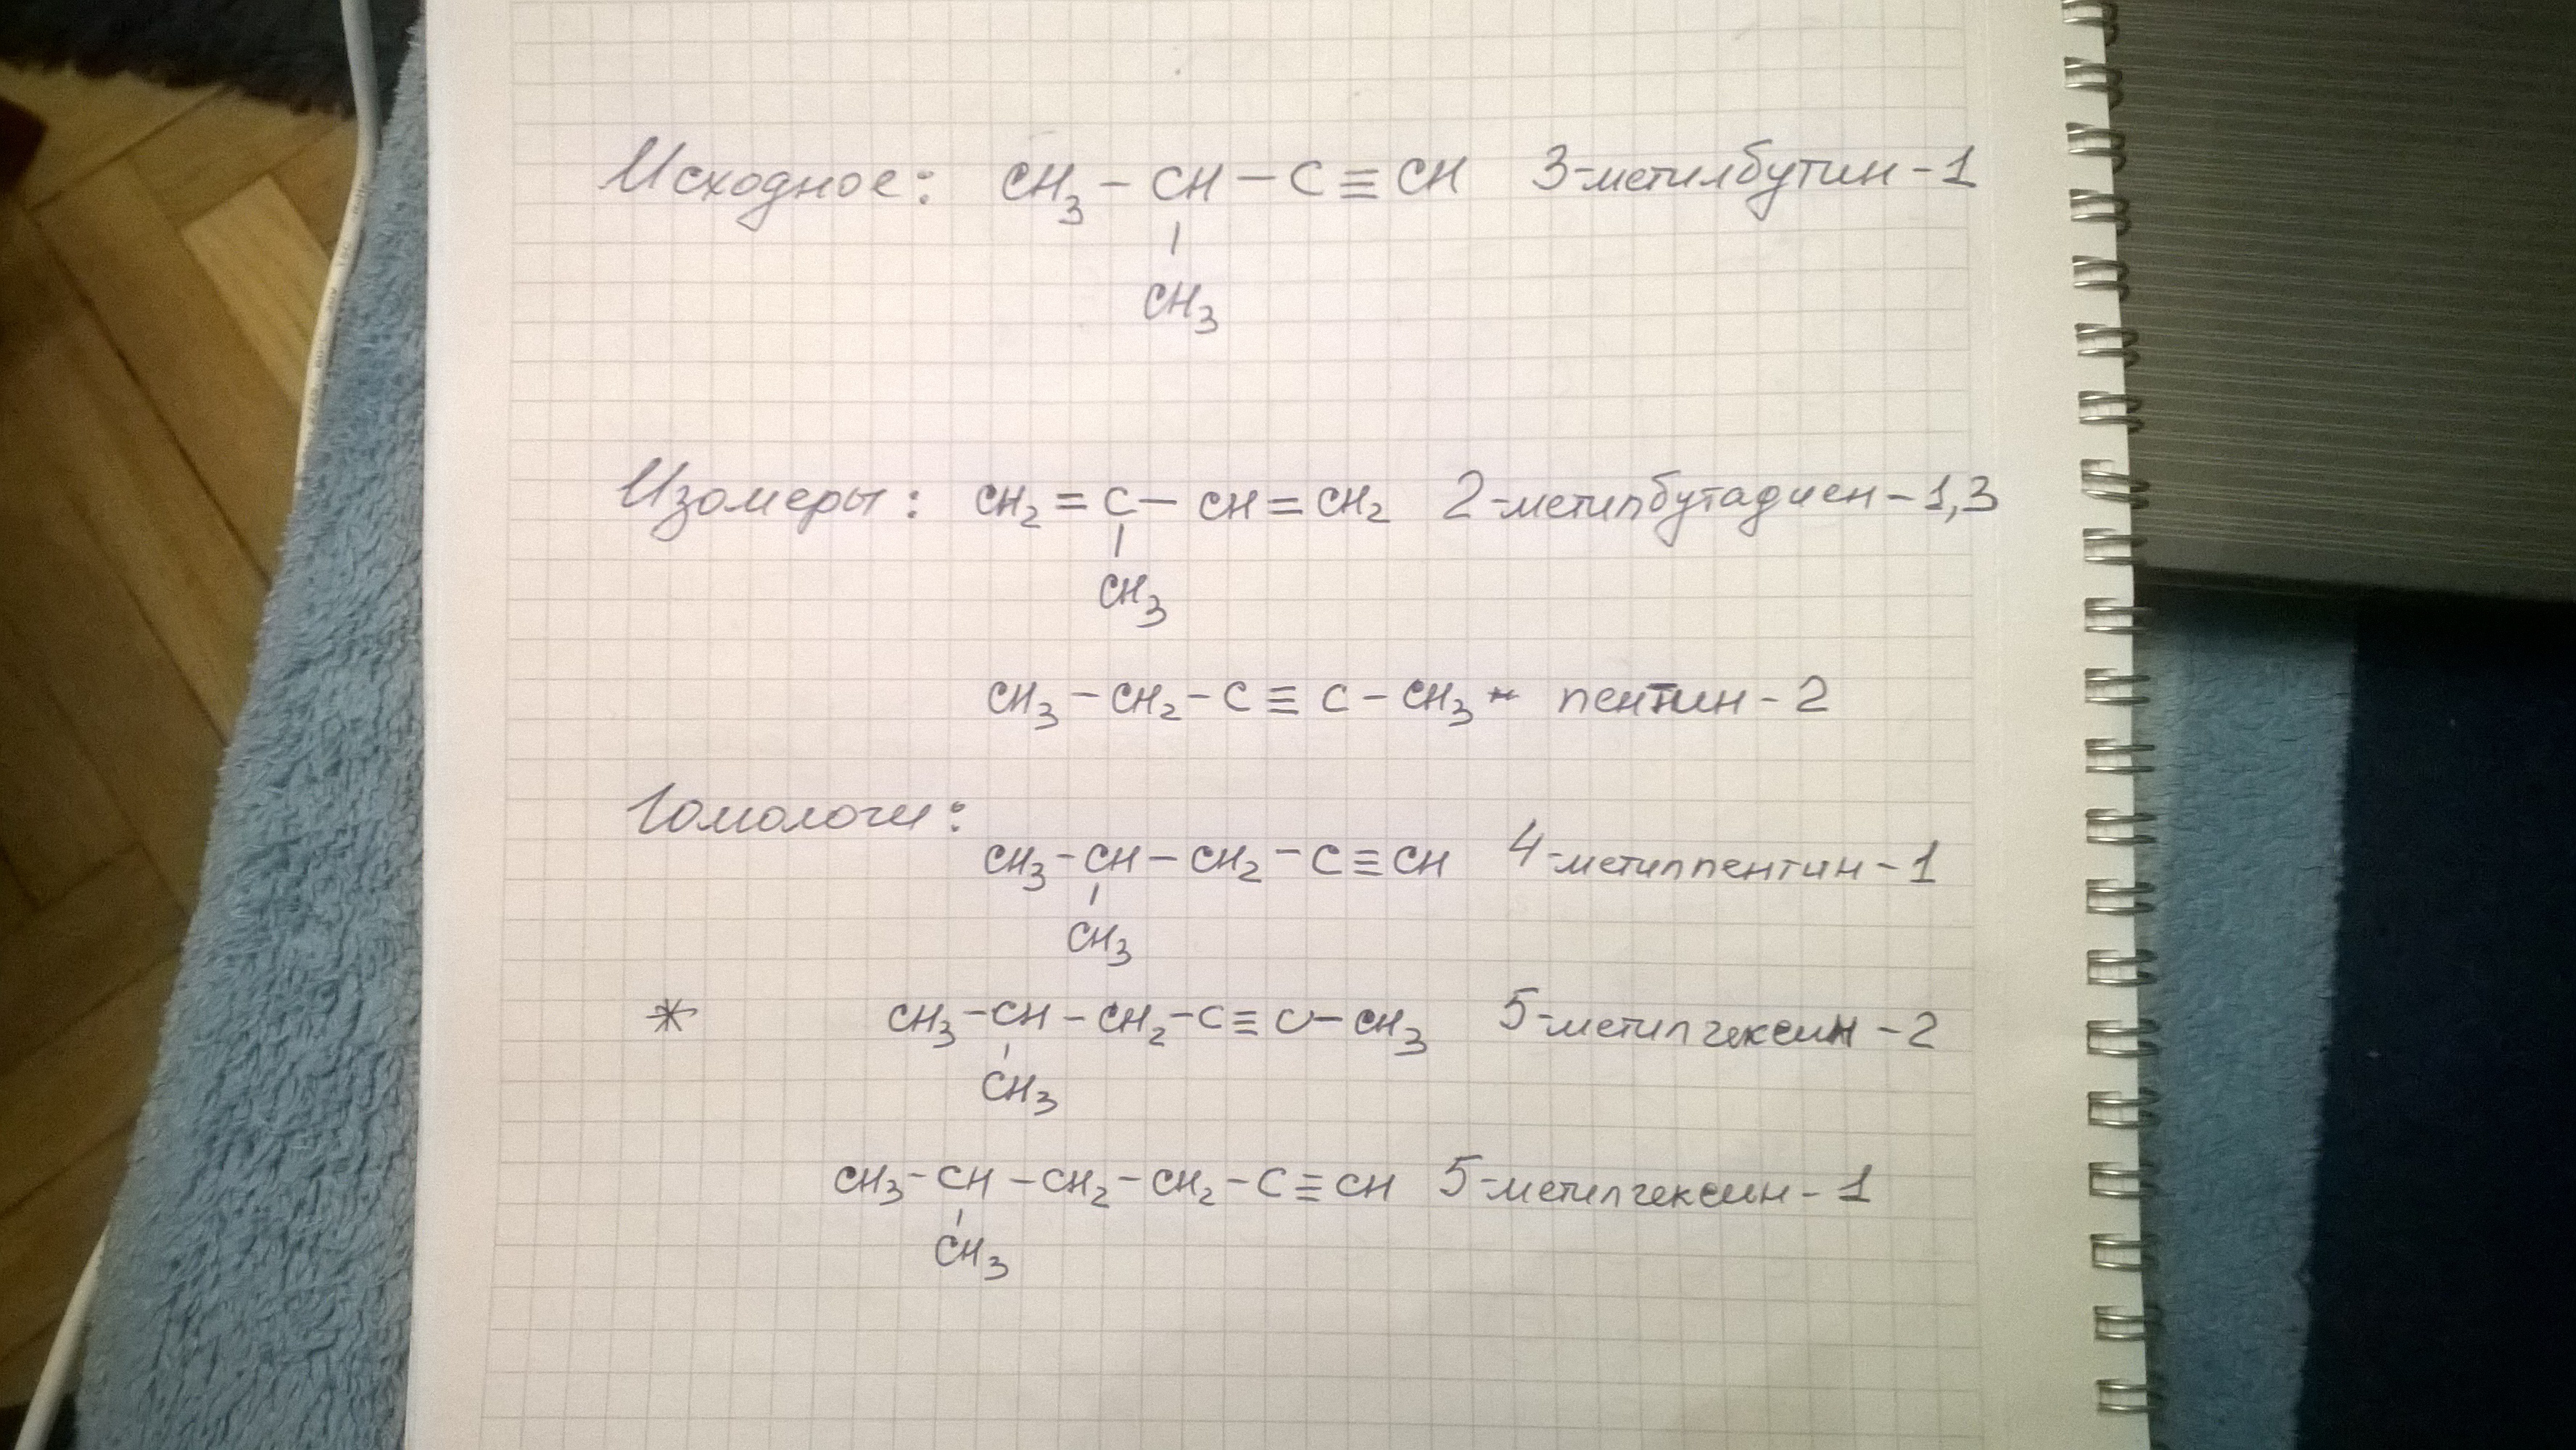 Исходное: CH₃ – CH – C ≡ CH 3-метилбутин-1
|
CH₃
Изомеры: CH₂ = C – CH = CH₂ 2-метилбутадиен-1,3
|
CH₃
CH₃ – CH₂ – C ≡ C – CH₃ - пентин-2
Гомологи:
CH₃ – CH – CH₂ – C ≡ CH 4-метилпентин-1
|
CH₃
* CH₃ – CH – CH₂ – C ≡ C – CH₃ 5-метилгексин-2
|
CH₃
CH₃ – CH – CH₂ – CH₂ – C ≡ CH 5-метилгексин-1
|
CH₃